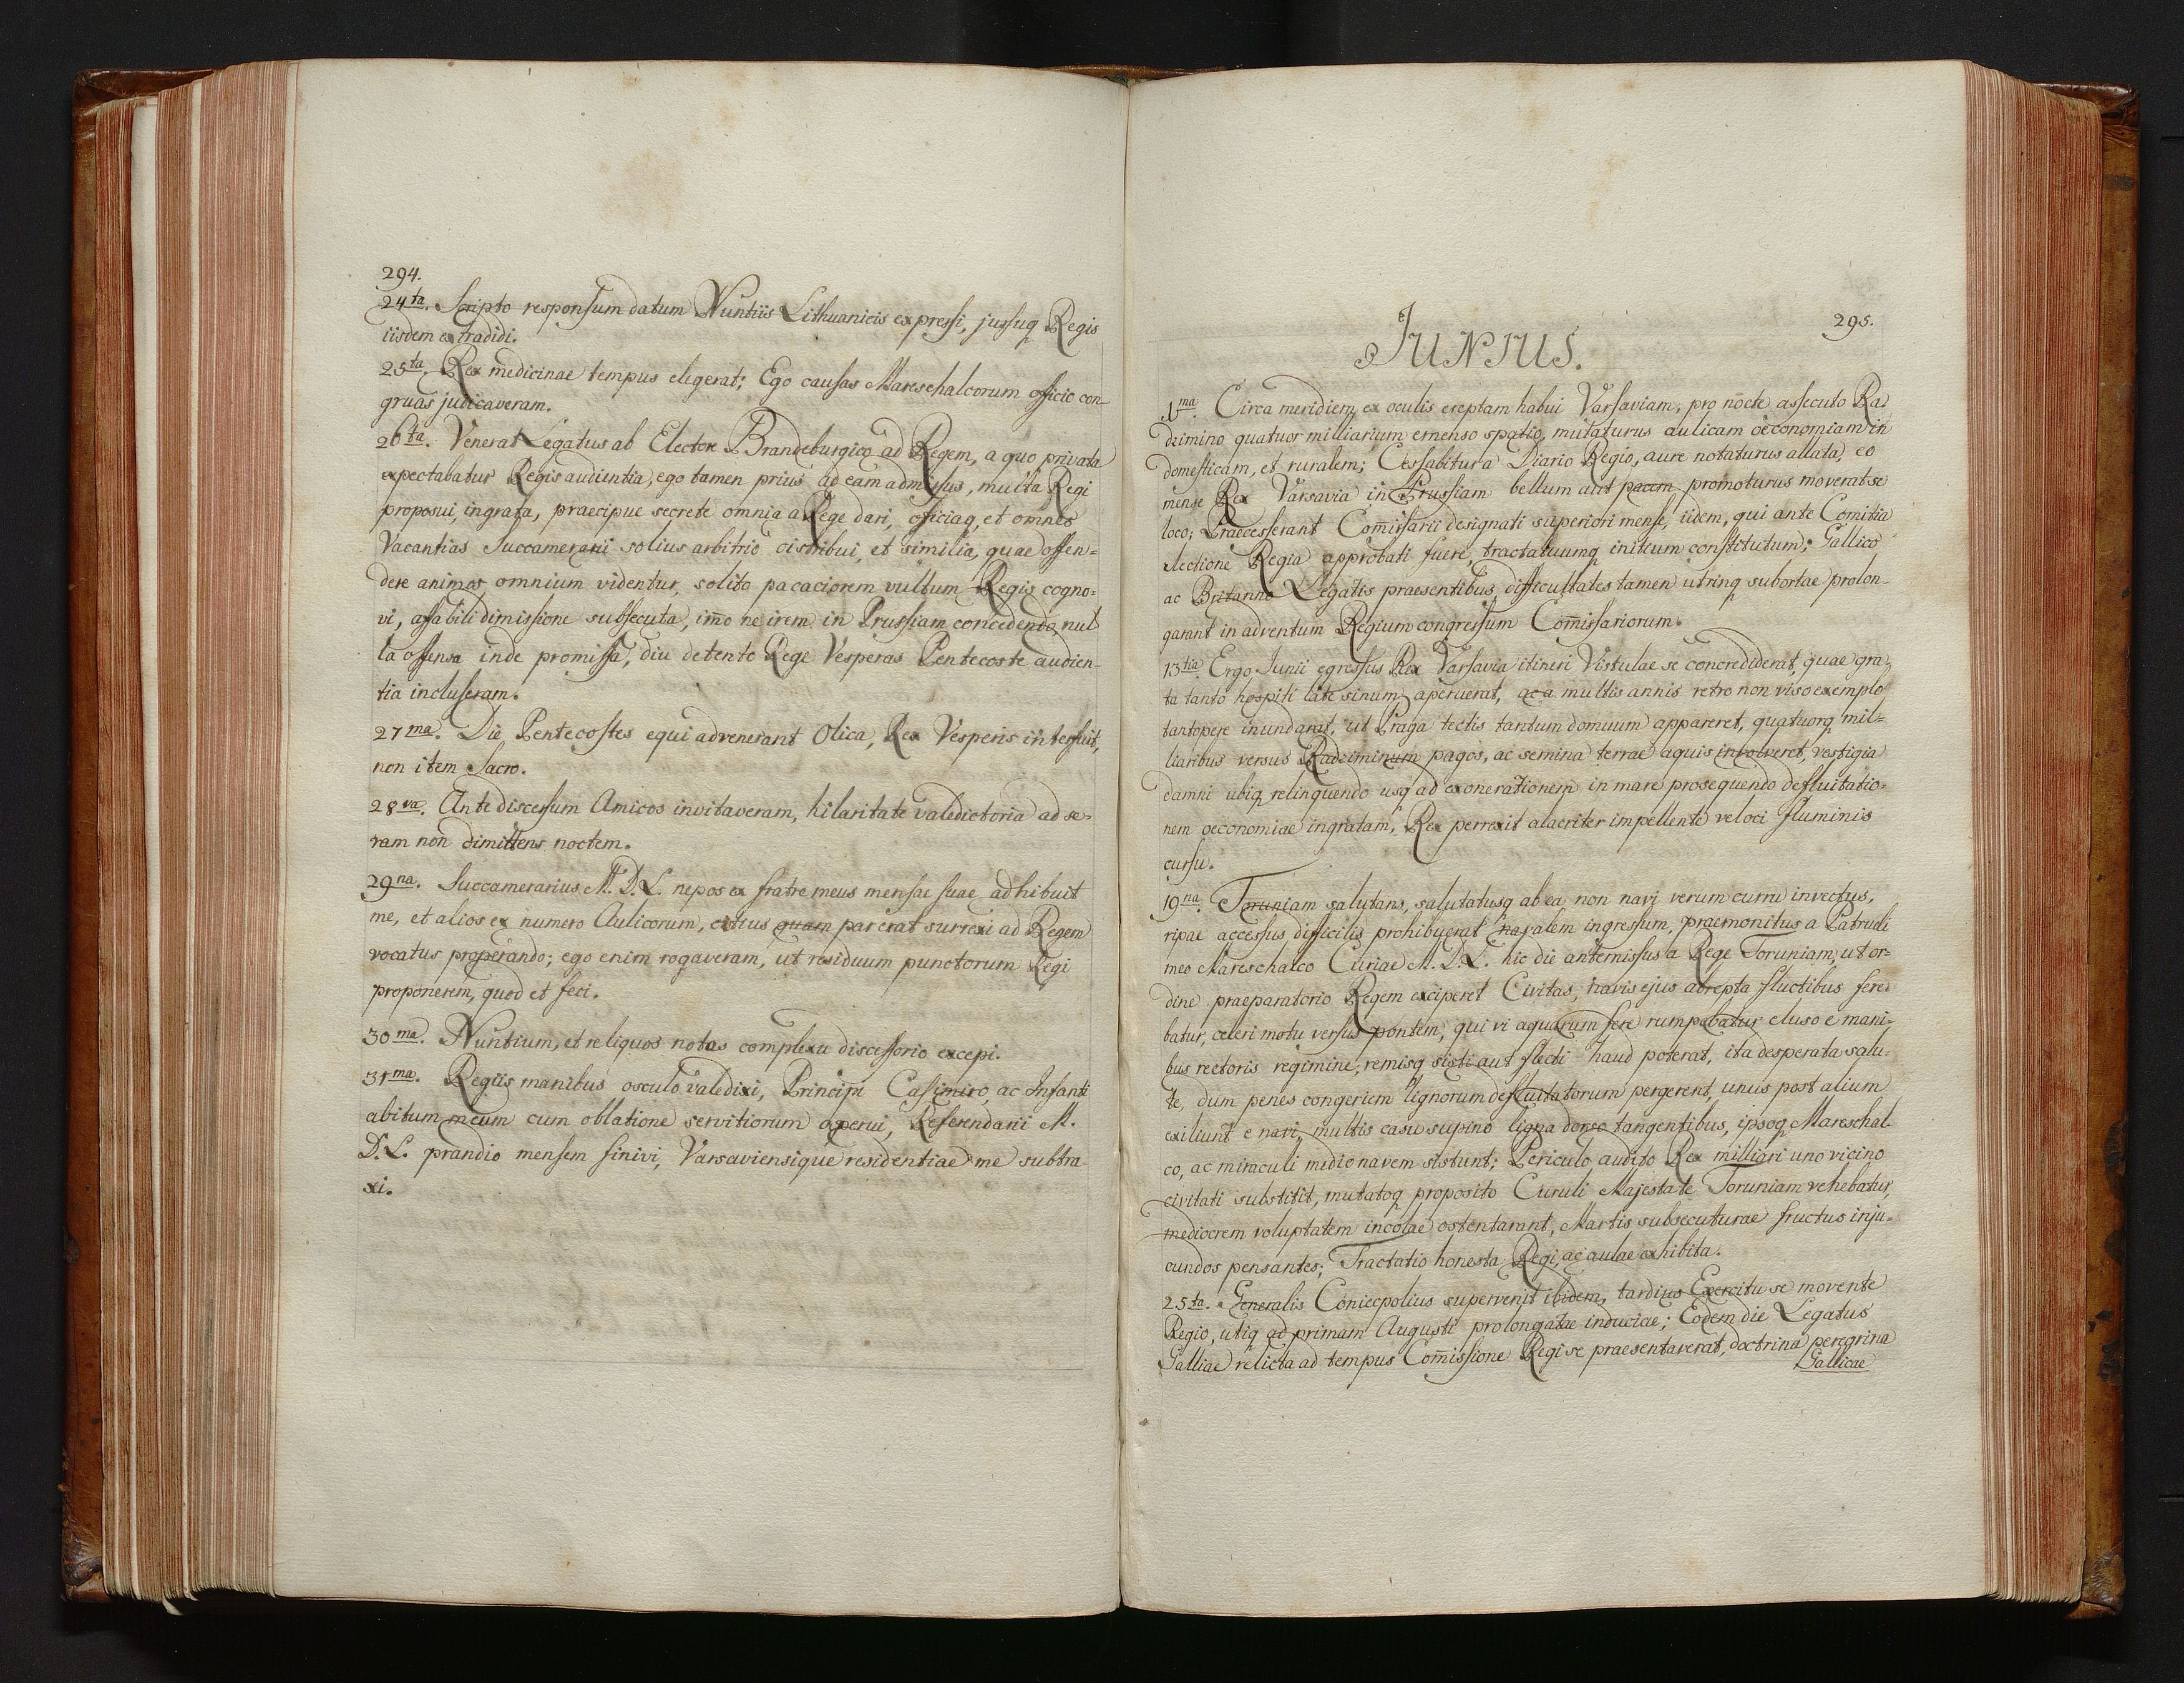 294.
24ta. Scripto responsum datum Nuntiis Lithuanicis expressi, jussuq Regis
iisdem extradidi.
25ta. Rex medicinae tempus elegerat; Ego causas Mareschalcorum officio con-
gruas judicaveram.
26ta. Venerat Legatus ab Electore Brandeburgico ad Regem, a quo privata
expectabatur Regis audientia, ego tamen prius ad eam admissus, multa Regi
proposui, ingrata, praecipue secrete omnia a Rege dari, officiaq, et omnes
Vacantias Succamerarii solius arbitrio distribui, et similia, quae offen=
dere animos omnium videntur, solito pacaciorem vultum Regis cogno=
vi, affabili dimissione subsecuta, im̄o ne irem in Prussiam concedendo, nul
la offensa inde promissa, diu detento Rege Vesperas Pentecoste audien-
tia incluseram.
27ma. Die Pentecostes equi advenerant Olica, Rex Vesperis interfuit,
non item Sacro.
28va. Ante discessum Amicos invitaveram, hilaritate valedictoria ad se=
ram non dimittens noctem.
29na. Succamerarius M. D. L. nepos ex fratre meus mensae suae adhibuit
me, et alios ex numero Aulicorum, citius quam par erat surrexi ad Regem
vocatus properando; ego enim rogaveram, ut residuum punctorum Regi
proponerem, quod et feci.
30ma. Nuntium, et reliquos notos complexu discessorio excepi.
31ma. Regiis manibus osculo valedixi, Principi Casimiro, ac Infanti
abitum meum cum oblatione servitiorum aperui, Referendarii M.
D. L. prandio mensem finivi, Varsaviensique residentiae me subtra-
xi.
295.
JUNIUS.
1ma. Circa meridiem ex oculis ereptam habui Varsaviam, pro nocte assecuto Ra=
dzimino quatuor milliarium emenso spatio, mutaturus aulicam oeconomiam in
domesticam, et ruralem; Cessabitur a Diario Regio, aure notaturus allata, eo
mense Rex Varsavia in Prussiam bellum aut pacem promoturus moverat se
loco; Praecesserant Com̄issarii designati superiori mense, iidem, qui ante Comitia
electione Regia approbati fuere, tractatuumq initium constitutum; Gallico
ac Britanno Legatis praesentibus, difficultates tamen utrinq subortae prolon-
garant in adventum Regium congressum Com̄issariorum.
13tia. Ergo Junii egressus Rex Varsavia itineri Vistulae se concrediderat, quae gra=
ta tanto hospiti late sinum aperuerat, ac a multis annis retro non viso exemplo
tantopere inundarat, ut Praga tectis tantum domuum appareret, quatuorq mil=
liaribus versus Radziminum pagos, ac semina terrae aquis involveret, vestigia
damni ubiq relinquendo usq ad exonerationem in mare prosequendo defluitatio=
nem oeconomiae ingratam, Rex perrexit alacriter impellente veloci fluminis
cursu.
19na. Toruniam salutans, salutatusq ab ea, non navi verum curru invectus,
ripae accessus difficilis prohibuerat navalem ingressum, praemonitus a Patrueli
meo Mareschalco Curiae M. D. L. hic die antemissus a Rege Toruniam, ut or=
dine praeparatorio Regem exciperet Civitas, navis ejus abrepta fluctibus fere=
batur, celeri motu versus pontem, qui vi aquarum fere rumpebatur eluso e mani=
bus rectoris regimine, remisq sisti aut flecti haud poterat, ita desperata salu=
te, dum penes congeriem lignorum defluitatorum pergerent, unus post alium
exiliunt e navi, multis casu supino ligna dorso tangentibus, ipsoq Mareschal=
co, ac miraculi medio navem sistunt; Periculo audito Rex milliari uno vicino
civitati substitit, mutatoq proposito Curuli Majestate Toruniam vehebatur,
mediocrem voluptatem incolae ostentarant, Martis subsecuturae fructus inju=
cundos pensantes; Tractatio honesta Regi, ac aulae exhibita.
25ta. Generalis Coniecpolius supervenit ibidem, tardius Exercitu se movente
Regio, utiq ad primam Augusti prolongatae induciae; Eodem die Legatus
Galliae relicta ad tempus Com̄issione Regi se praesentaverat, doctrina peregrina
Gallicae